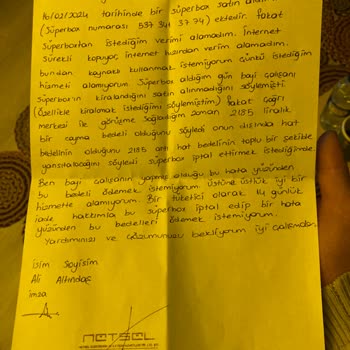 16/02/2024 tarihinde bir süperbox satın aldım.
(Süperbox numarası 537 341 37 74) ektedir. Fakat
Süperboxtan istediğim verimi alamadım. İnternet
Sürekli kopuyor, internet hızından verim alamadım.
bundan kaynaklı kullanmak istemiyorum çünkü istediğim
hizmeti alamıyorum Süperbox aldığım gün bayi çalışanı
Süperbox'ın kiralandığını satın alınmadığını söylemişti
(Özellikle kiralamak istediğimi söylemiştim) Fakat Çağrı
merkezi ile görüşme sağladığım zaman 2185 liralık
bir cayma bedeli olduğunu söyledi onun dışında hat
bedelinin olduğunu 2185 hat bedelinin toplu bir şekilde
yansıtılacağını söyledi süperbox iptal ettirmek istediğimde.
Ben bayi çalışanın yapmış olduğu bu hata yüzünden
bu bedeli ödemek istemiyorum üstüne üstlük iyi bir
hizmette alamıyorum. Bir tüketici olarak 14 günlük
iade hakkımla bu süperbox iptal edip bir hata
yüzünden bu bedelleri ödemek istemiyorum.
Yardımınızı ve Çözümünüzü bekliyorum iyi çalışmalar
İsim Soyisim
Ali Altındaş
imza
NETSEL